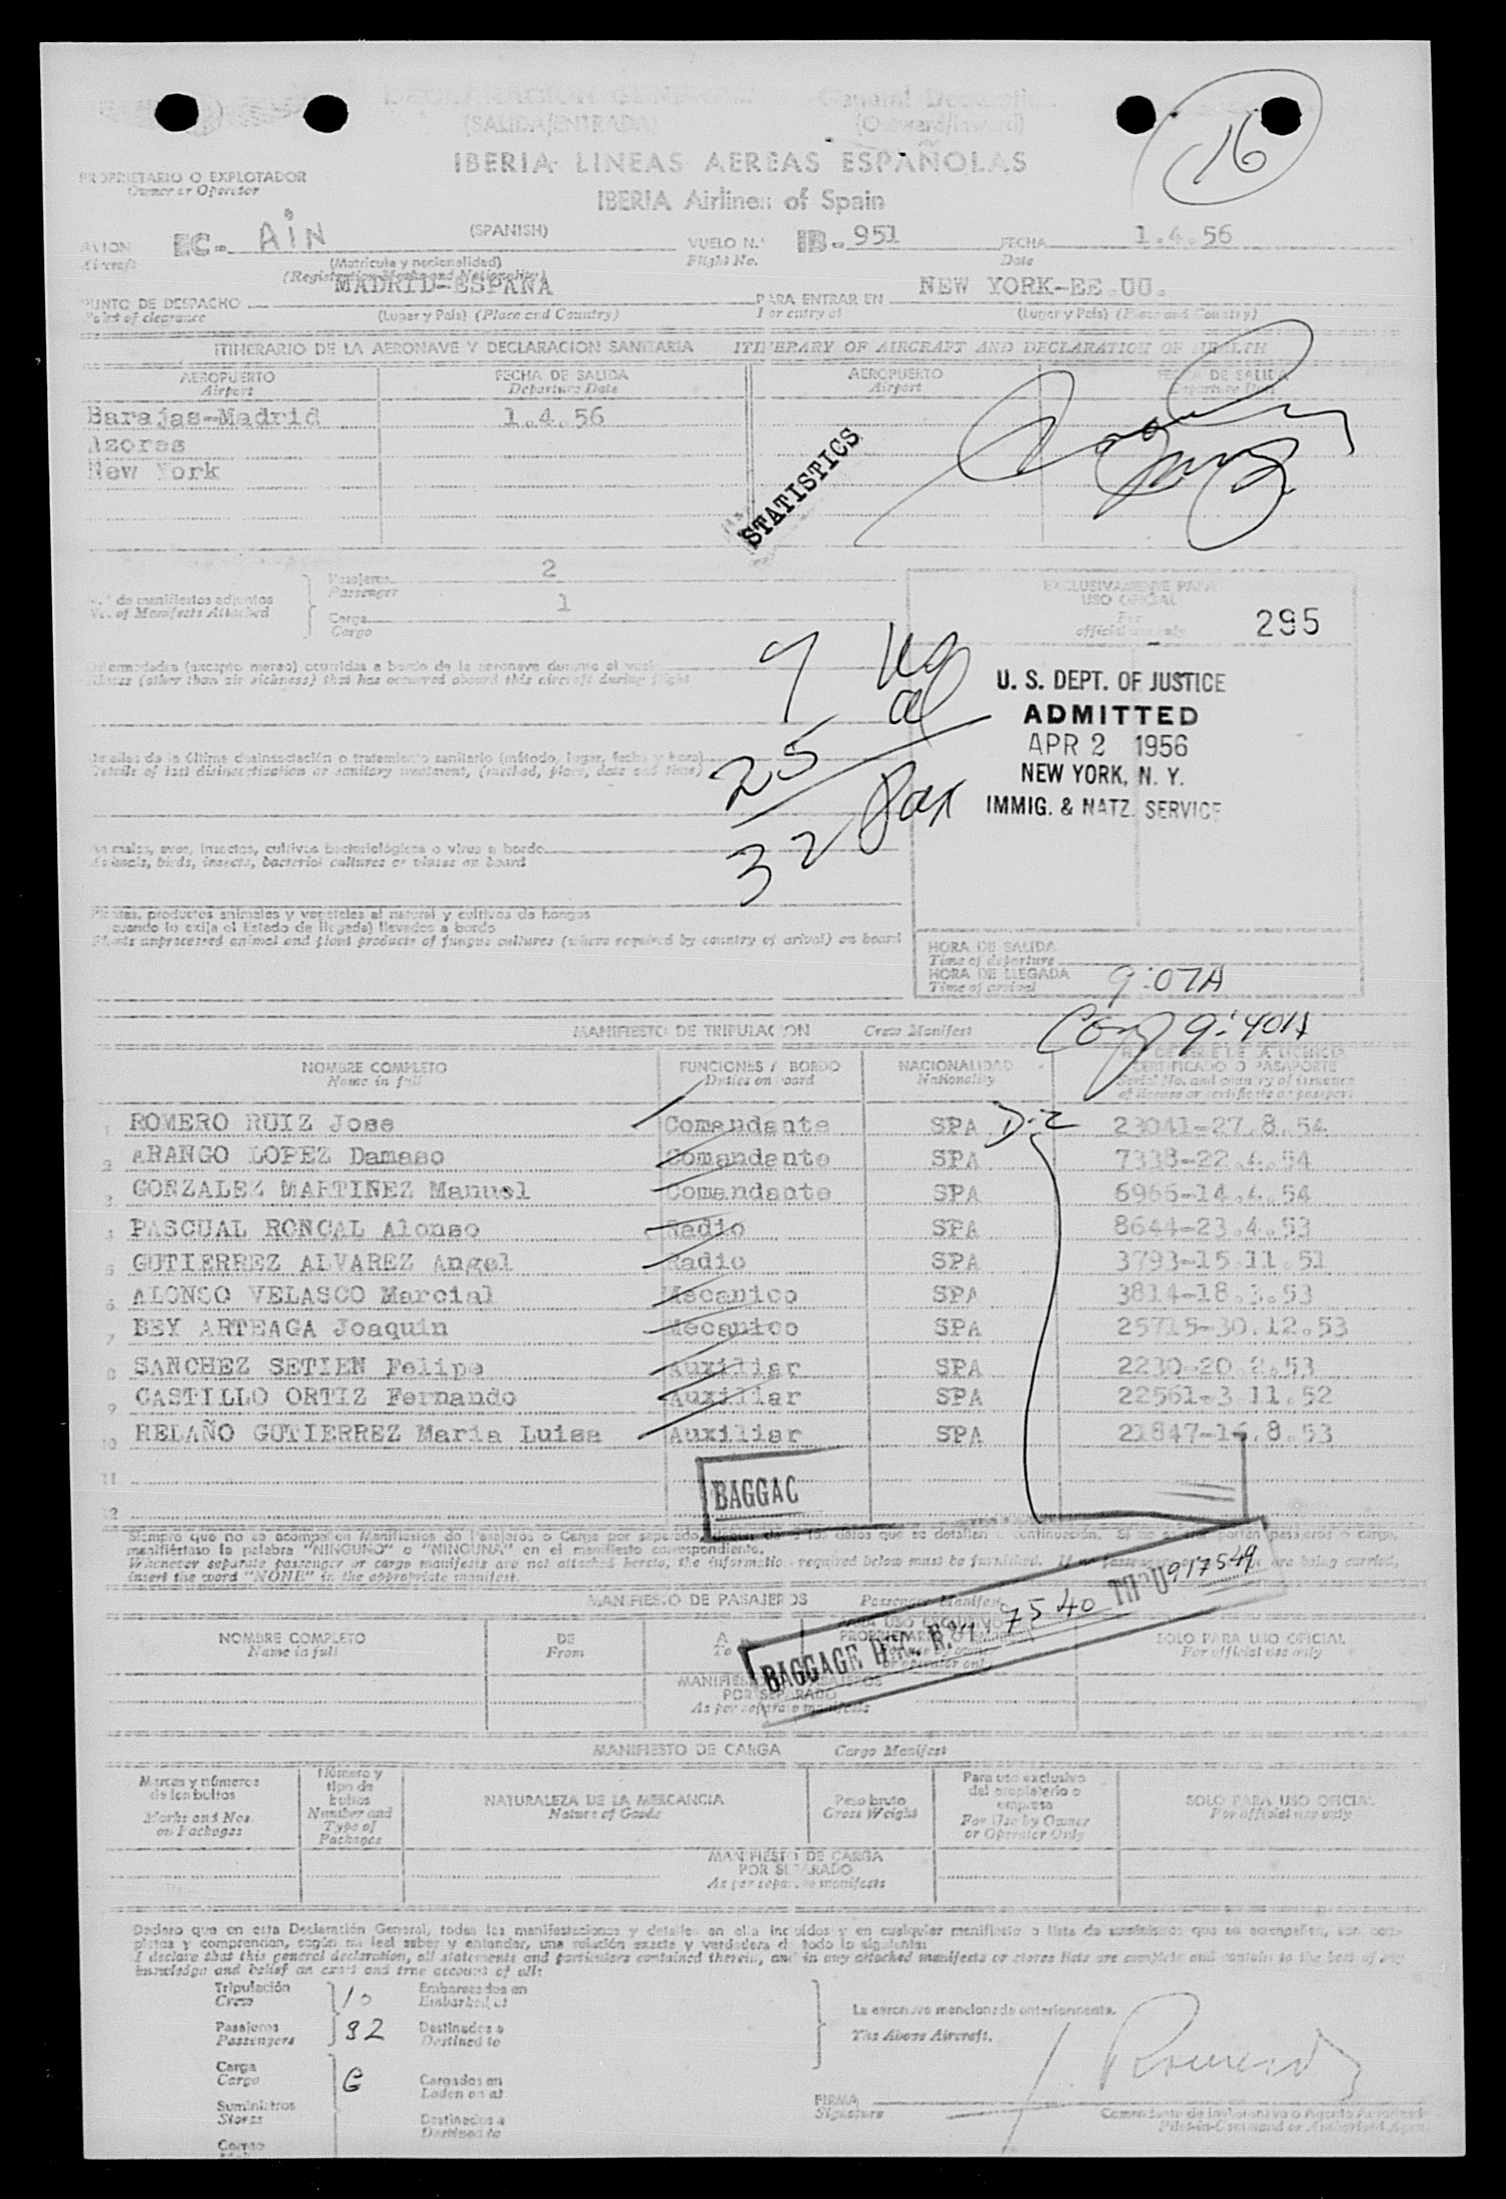 DECLARACION GENERAL General Declaration
(SALIDA/ENTRADA) (Outward/Inward)
16
IBERIA LINEAS AEREAS ESPAÑOLAS
PROPIETARIO O EXPLOTADOR
Owner or Operator
IBERIA Airlines of Spain
AVION EC- AIN (SPANISH) VUELO N.º IB.- 951 FECHA 1.4.56
Aircraft (Matrícula y nacionalidad) Flight No. Date
(Registration Marks and Nationality)
MADRID-ESPAÑA NEW YORK-EE.UU.
PUNTO DE DESPACHO PARA ENTRAR EN
Point of clearance (Lugar y País) (Place and Country) For entry at (Lugar y País) (Place and Country)
ITINERARIO DE LA AERONAVE Y DECLARACION SANITARIA ITINERARY OF AIRCRAFT AND DECLARATION OF HEALTH
AEROPUERTO FECHA DE SALIDA AEROPUERTO FECHA DE SALIDA
Airport Departure Date Airport Departure Date
Barajas-Madrid 1.4.56
Azores
New York
STATISTICS
N.º de manifiestos adjuntos
No. of Manifests Attached
Pasajeros 2
Passenger
Carga 1
Cargo
EXCLUSIVAMENTE PARA
USO OFICIAL
For
official use only
295
Enfermedades (excepto mareo) ocurridas a bordo de la aeronave durante el vuelo
Illness (other than air sickness) that has occurred aboard this aircraft during flight
7 us
25 al
32 Pax
U. S. DEPT. OF JUSTICE
ADMITTED
APR 2 1956
NEW YORK, N. Y.
IMMIG. & NATZ. SERVICE
Detalles de la última desinsectación o tratamiento sanitario (método, lugar, fecha y hora)
Details of last disinsectization or sanitary treatment, (method, place, date and time)
Animales, aves, insectos, cultivos bacteriológicos o virus a bordo
Animals, birds, insects, bacterial cultures or viruses on board
Plantas, productos animales y vegetales al natural y cultivos de hongos
(cuando lo exija el Estado de llegada) llevados a bordo
Plants unprocessed animal and plant products of fungus cultures (where required by country of arival) on board
HORA DE SALIDA
Time of departure
HORA DE LLEGADA 9:07A
Time of arrival
9:40A
MANIFIESTO DE TRIPULACION Crew Manifest
NOMBRE COMPLETO FUNCIONES A BORDO NACIONALIDAD N.º DE SERIE DE LA LICENCIA
Name in full Duties on board Nationality CERTIFICADO O PASAPORTE
Serial No. and country of issuance
of license or certificate or passport
1 ROMERO RUIZ Jose Comandante SPA D-2 23041-27.8.54
2 ARANGO LOPEZ Damaso Comandante SPA 7338-22.4.54
3 GONZALEZ MARTINEZ Manuel Comandante SPA 6966-14.4.54
4 PASCUAL RONCAL Alonso Radio SPA 8644-23.4.53
5 GUTIERREZ ALVAREZ Angel Radio SPA 3793-15.11.51
6 ALONSO VELASCO Marcial Mecanico SPA 3814-18.3.53
7 BEY ARTEAGA Joaquin Mecanico SPA 25715-30.12.53
8 SANCHEZ SETIEN Felipe Auxiliar SPA 2230-20.2.53
9 CASTILLO ORTIZ Fernando Auxiliar SPA 22561-3.11.52
10 RELAÑO GUTIERREZ Maria Luisa Auxiliar SPA 21847-14.8.53
11
BAGGAC
12
manifiéstase la palabra "NINGUNO" o "NINGUNA" en el manifiesto correspondiente.
Whenever separate passenger or cargo manifests are not attached hereto, the information required below must be furnished. If no passengers or cargo are being carried,
insert the word "NONE" in the appropriate manifest.
MANIFIESTO DE PASAJEROS Passenger Manifest
BAGGAGE 7540 THRU 917549
NOMBRE COMPLETO DE A SOLO PARA USO OFICIAL
Name in full From To For official use only
MANIFIESTO DE PASAJEROS
POR SEPARADO
As per separate manifests
MANIFIESTO DE CARGA Cargo Manifest
Marcas y números de los bultos
Marks and Nos. on Packages
Número y tipo de bultos
Number and Type of Packages
NATURALEZA DE LA MERCANCIA
Nature of Goods
Peso bruto
Gross Weight
Para uso exclusivo del propietario o empresa
For Use by Owner or Operator Only
SOLO PARA USO OFICIAL
For official use only
MANIFIESTO DE CARGA
POR SEPARADO
As per separate manifests
Declaro que en esta Declaración General, todas las manifestaciones y detalles en ella incluidos y en cualquier manifiesto o lista de suministros que se acompañen, son com-
pletas y comprenden, según mi leal saber y entender, una relación exacta y verdadera de todo lo siguiente:
I declare that this general declaration, all statements and particulars contained therein, and in any attached manifests or stores lists are complete and contain to the best of my
knowledge and belief an exact and true account of all:
Tripulación 10 Embarcados en
Crew Embarked at
La aeronave mencionada anteriormente.
Pasajeros 32 Destinados a
Passengers Destined to
The Above Aircraft.
Carga G Cargados en
Cargo Laden on at
Suministros
Stores
FIRMA
Signature
Comandante de la aeronave o Agente Autorizado
Pilot-in-Command or Authorized Agent
Destinados a
Destined to
Correo